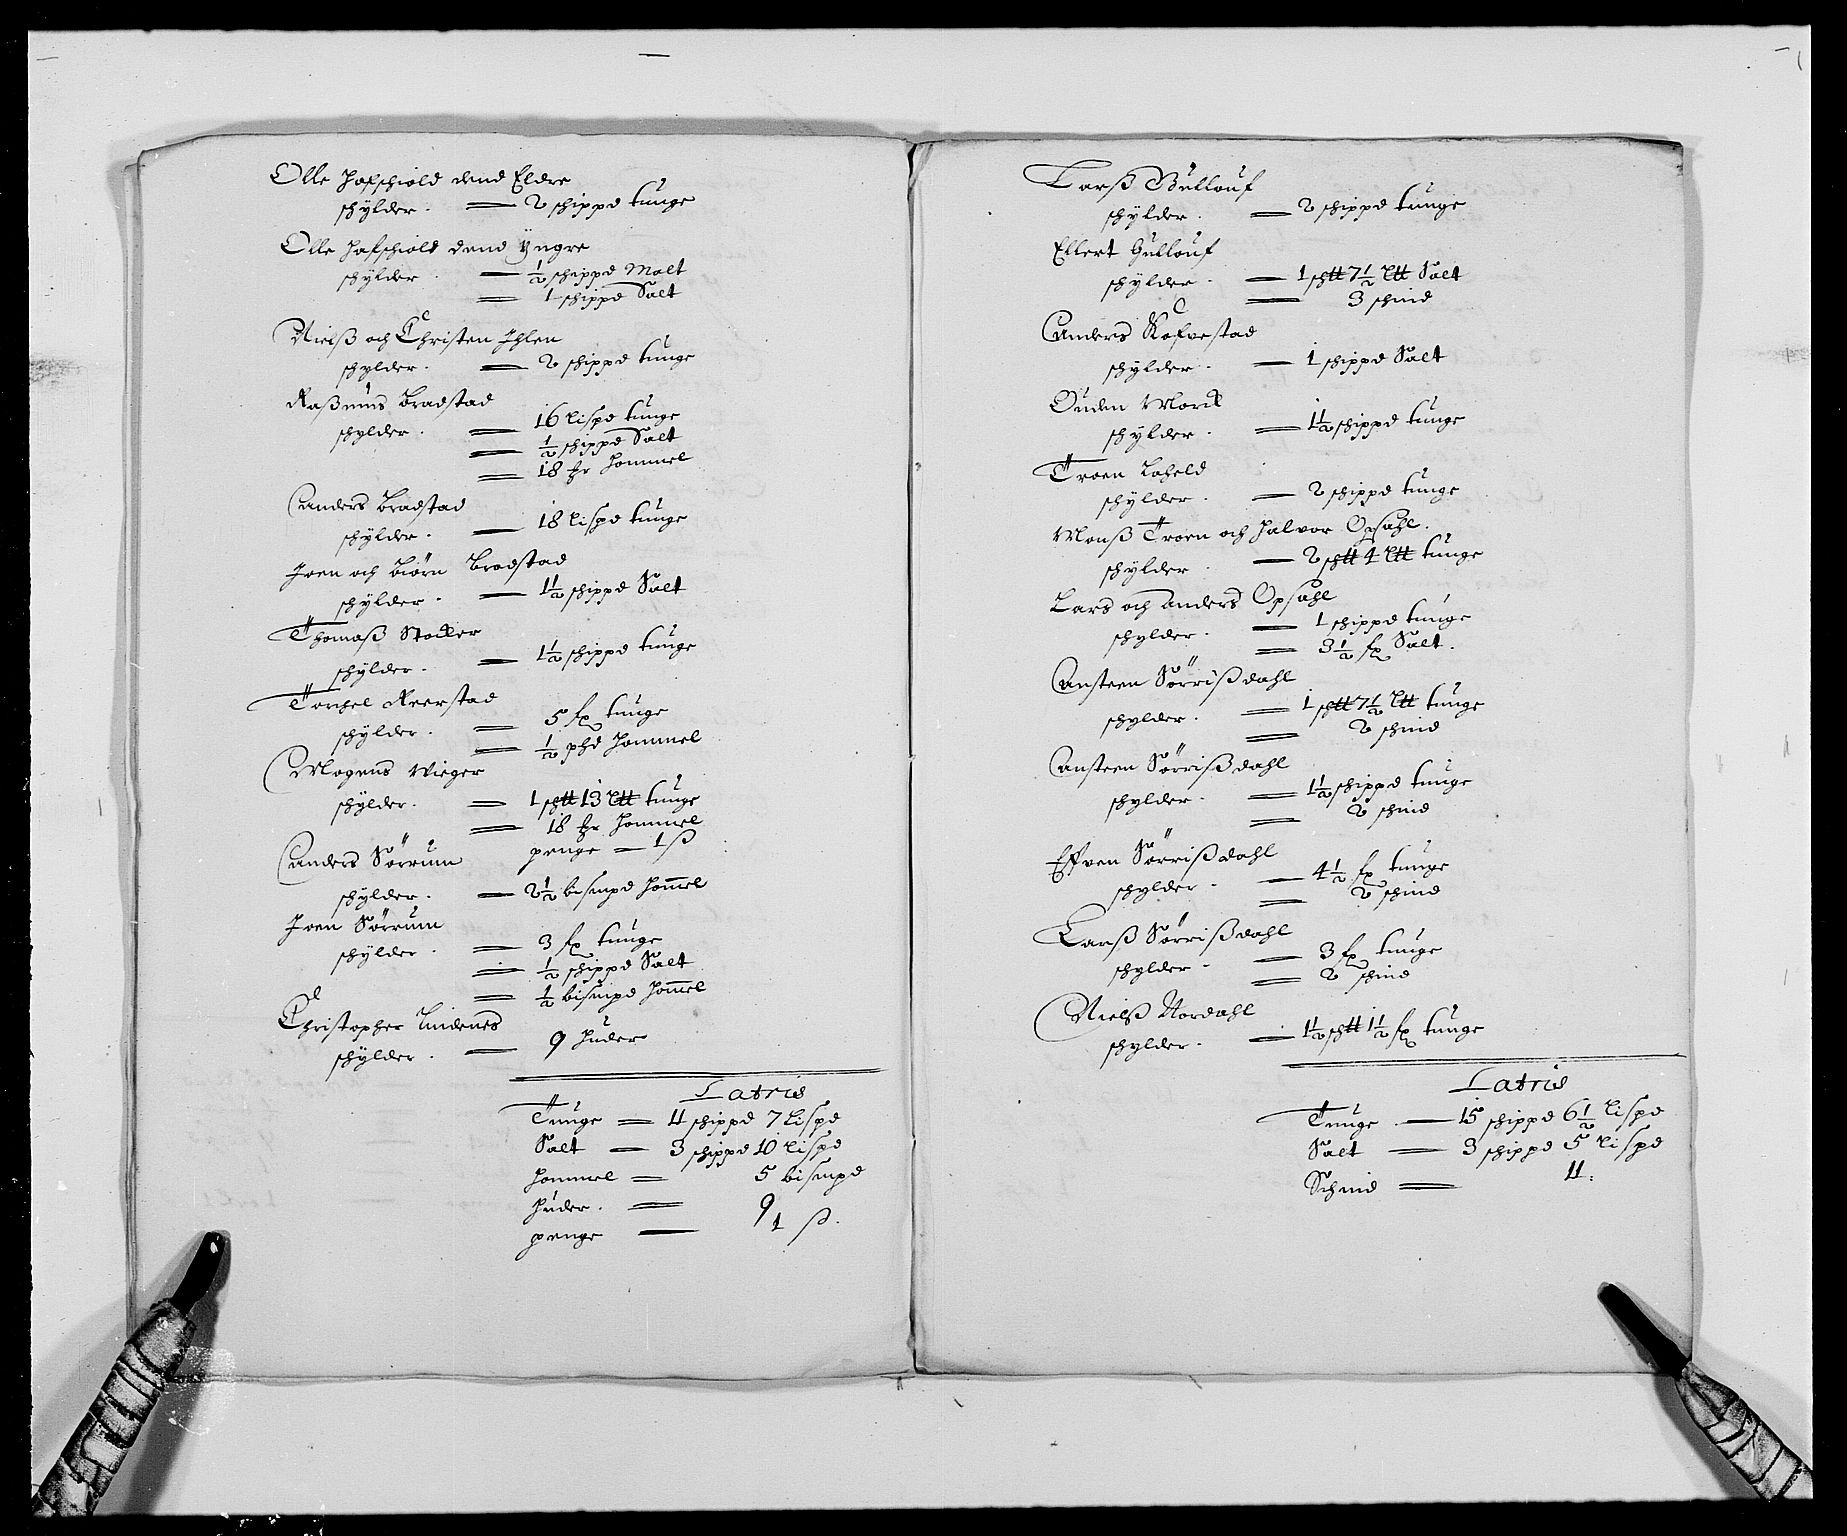 Olle Hafschiold dend Eldre
schÿlder. — 2 schippd tunge
Olle Hafschiold dend Ÿngre
schÿlder — ½ schippd Malt
— 1 schippd Salt
Nielß och Christen Ihlen
schylder. — 2 schippd tunge
Raßmus Bradstad
schylder. — 16 Lispd tunge
— ½ schippd Salt
— 18 Hommel
Anders Bradstad
schÿlder. — 18 Lispd tunge
Joen och Biørn Bradstad
schÿlder. — 1½ schippd Salt
Thomaß Stocker
schÿlder. — 1½ schippd tunge
Torchel Reerstad
schÿlder. — 5 fx tunge
— ½ phd Hommel
Mogens Wiger
schÿlder. — 1 sch℔ 13 L℔ tunge
— 18 Hommel
penge — 1 ß
Anders Sørrum
schÿlder. — 2½ bismpd Hommel
Joen Sørrum
schÿlder — 3 fx tunge
— ½ schippd Salt
— ½ bismpd Hommel
Christopher Lindenes
schÿlder. — 9 Huder
Latris
Tunge — 4 schippd 7 Lispd
Salt — 3 schippd 10 Lispd
Hommel — 5 bismpd
Huder. — 9
penge — 1 ß.
Larß Gullouf
schÿlder. — 2 schippd tunge
Ellert Gullouf
schÿlder. — 1 sch℔ 7½ L℔ Salt
— 3 schind
Anders Kofvestad
schÿlder. — 1 schippd Salt
Ouden Morck
schÿlder. — 1½ schippd tunge
Troen Loheld
schÿlder. — 2 schippd tunge
Monß Troen och Halvor Opsahl.
schÿlder. — 2 sch℔ 4 L℔ tunge
Lars och Anders Opsahl
schylder. — 1 schippd tunge
— 3½ fx Salt.
Ansteen Sørrißdahl
schylder. — 1 sch℔ 7½ L℔ tunge
— 2 schind
Ansteen Sørrißdahl
schylder. — 1½ schippd tunge
— 2 schind
Effven Sørrißdahl
schylder. — 4½ fx tunge
— 2 schind
Larß Sørrißdahl
schylder — 3 fx tunge
— 2 schind
Nielß Nordahl
schylder. — 1½ sch℔ 1½ fx tunge
Latris
Tunge. — 15 schippd 6½ Lispd
Salt — 3 schippd 5 Lispd
Schind — 11.